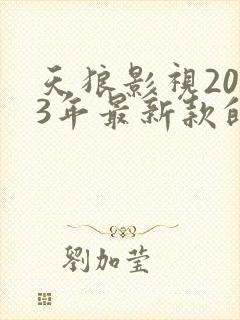 天狼影視20
3年最新款的
劉加莹